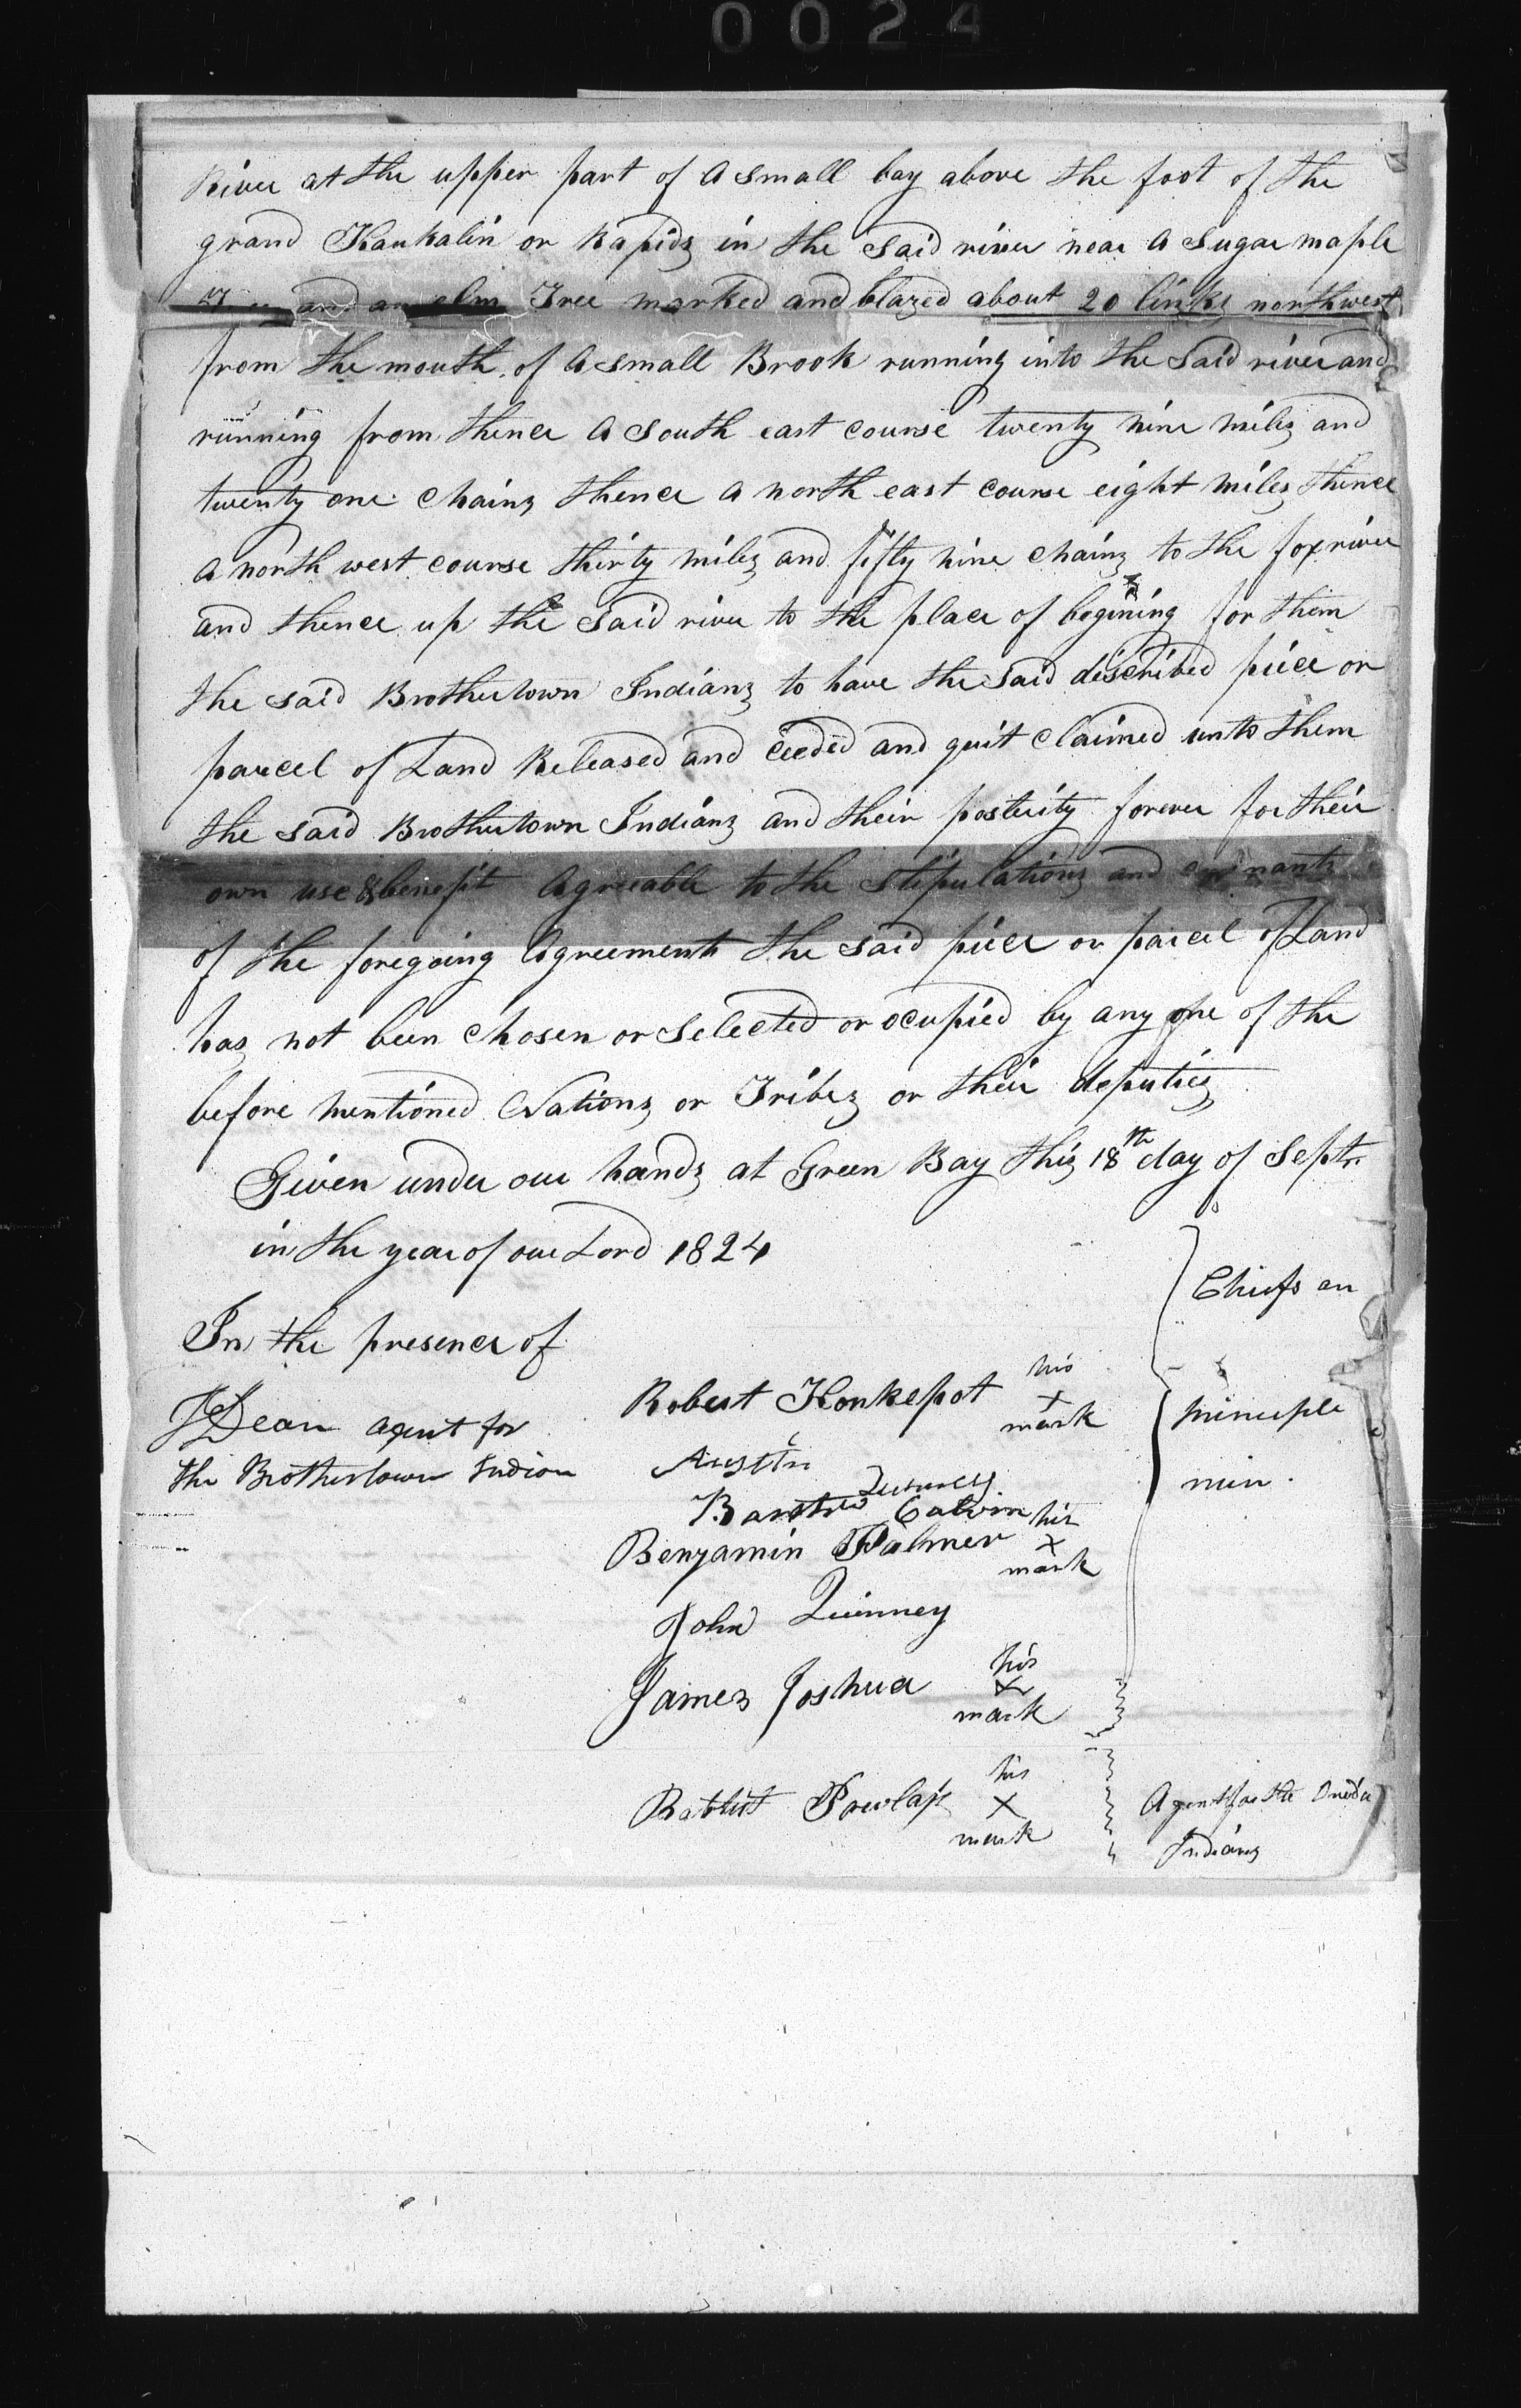 0024
River at the upper part of a small bay above the foot of the
grand Kaukalin or Rapids in the said river near a sugar maple
and an elm Tree marked and blazed about 20 links northwest
from the mouth of a small Brook running into the said river and
running from thence a south east course twenty nine miles and
twenty one chains thence a north east course eight miles thence
a north west course thirty miles and fifty nine chains to the fox river
and thence up the said river to the place of begining for them
the said Brothertown Indians to have the said discribed piece or
parcel of Land Released and ceeded and quit claimed unto them
the said Brothertown Indians and their posterity forever for their
own use & benefit Agreeable to the stipulations and
of the foregoing Agreements the said piece or parcel of Land
has not been chosen or selected or ocupied by any one of the
before mentioned Nations or Tribes or their deputies
Given under our hands at Green Bay this 18th day of Septr.
in the year of our Lord 1824
In the presence of
Chiefs an
Robert Konkepot his x mark
principle
J Dean agent for
the Brothertown Indian
Austin Quinney
men.
Calvin
Benjamin Palmer his x mark
John Quinney
James Joshua his x mark
his x mark
Agent for the Oneida
Indians